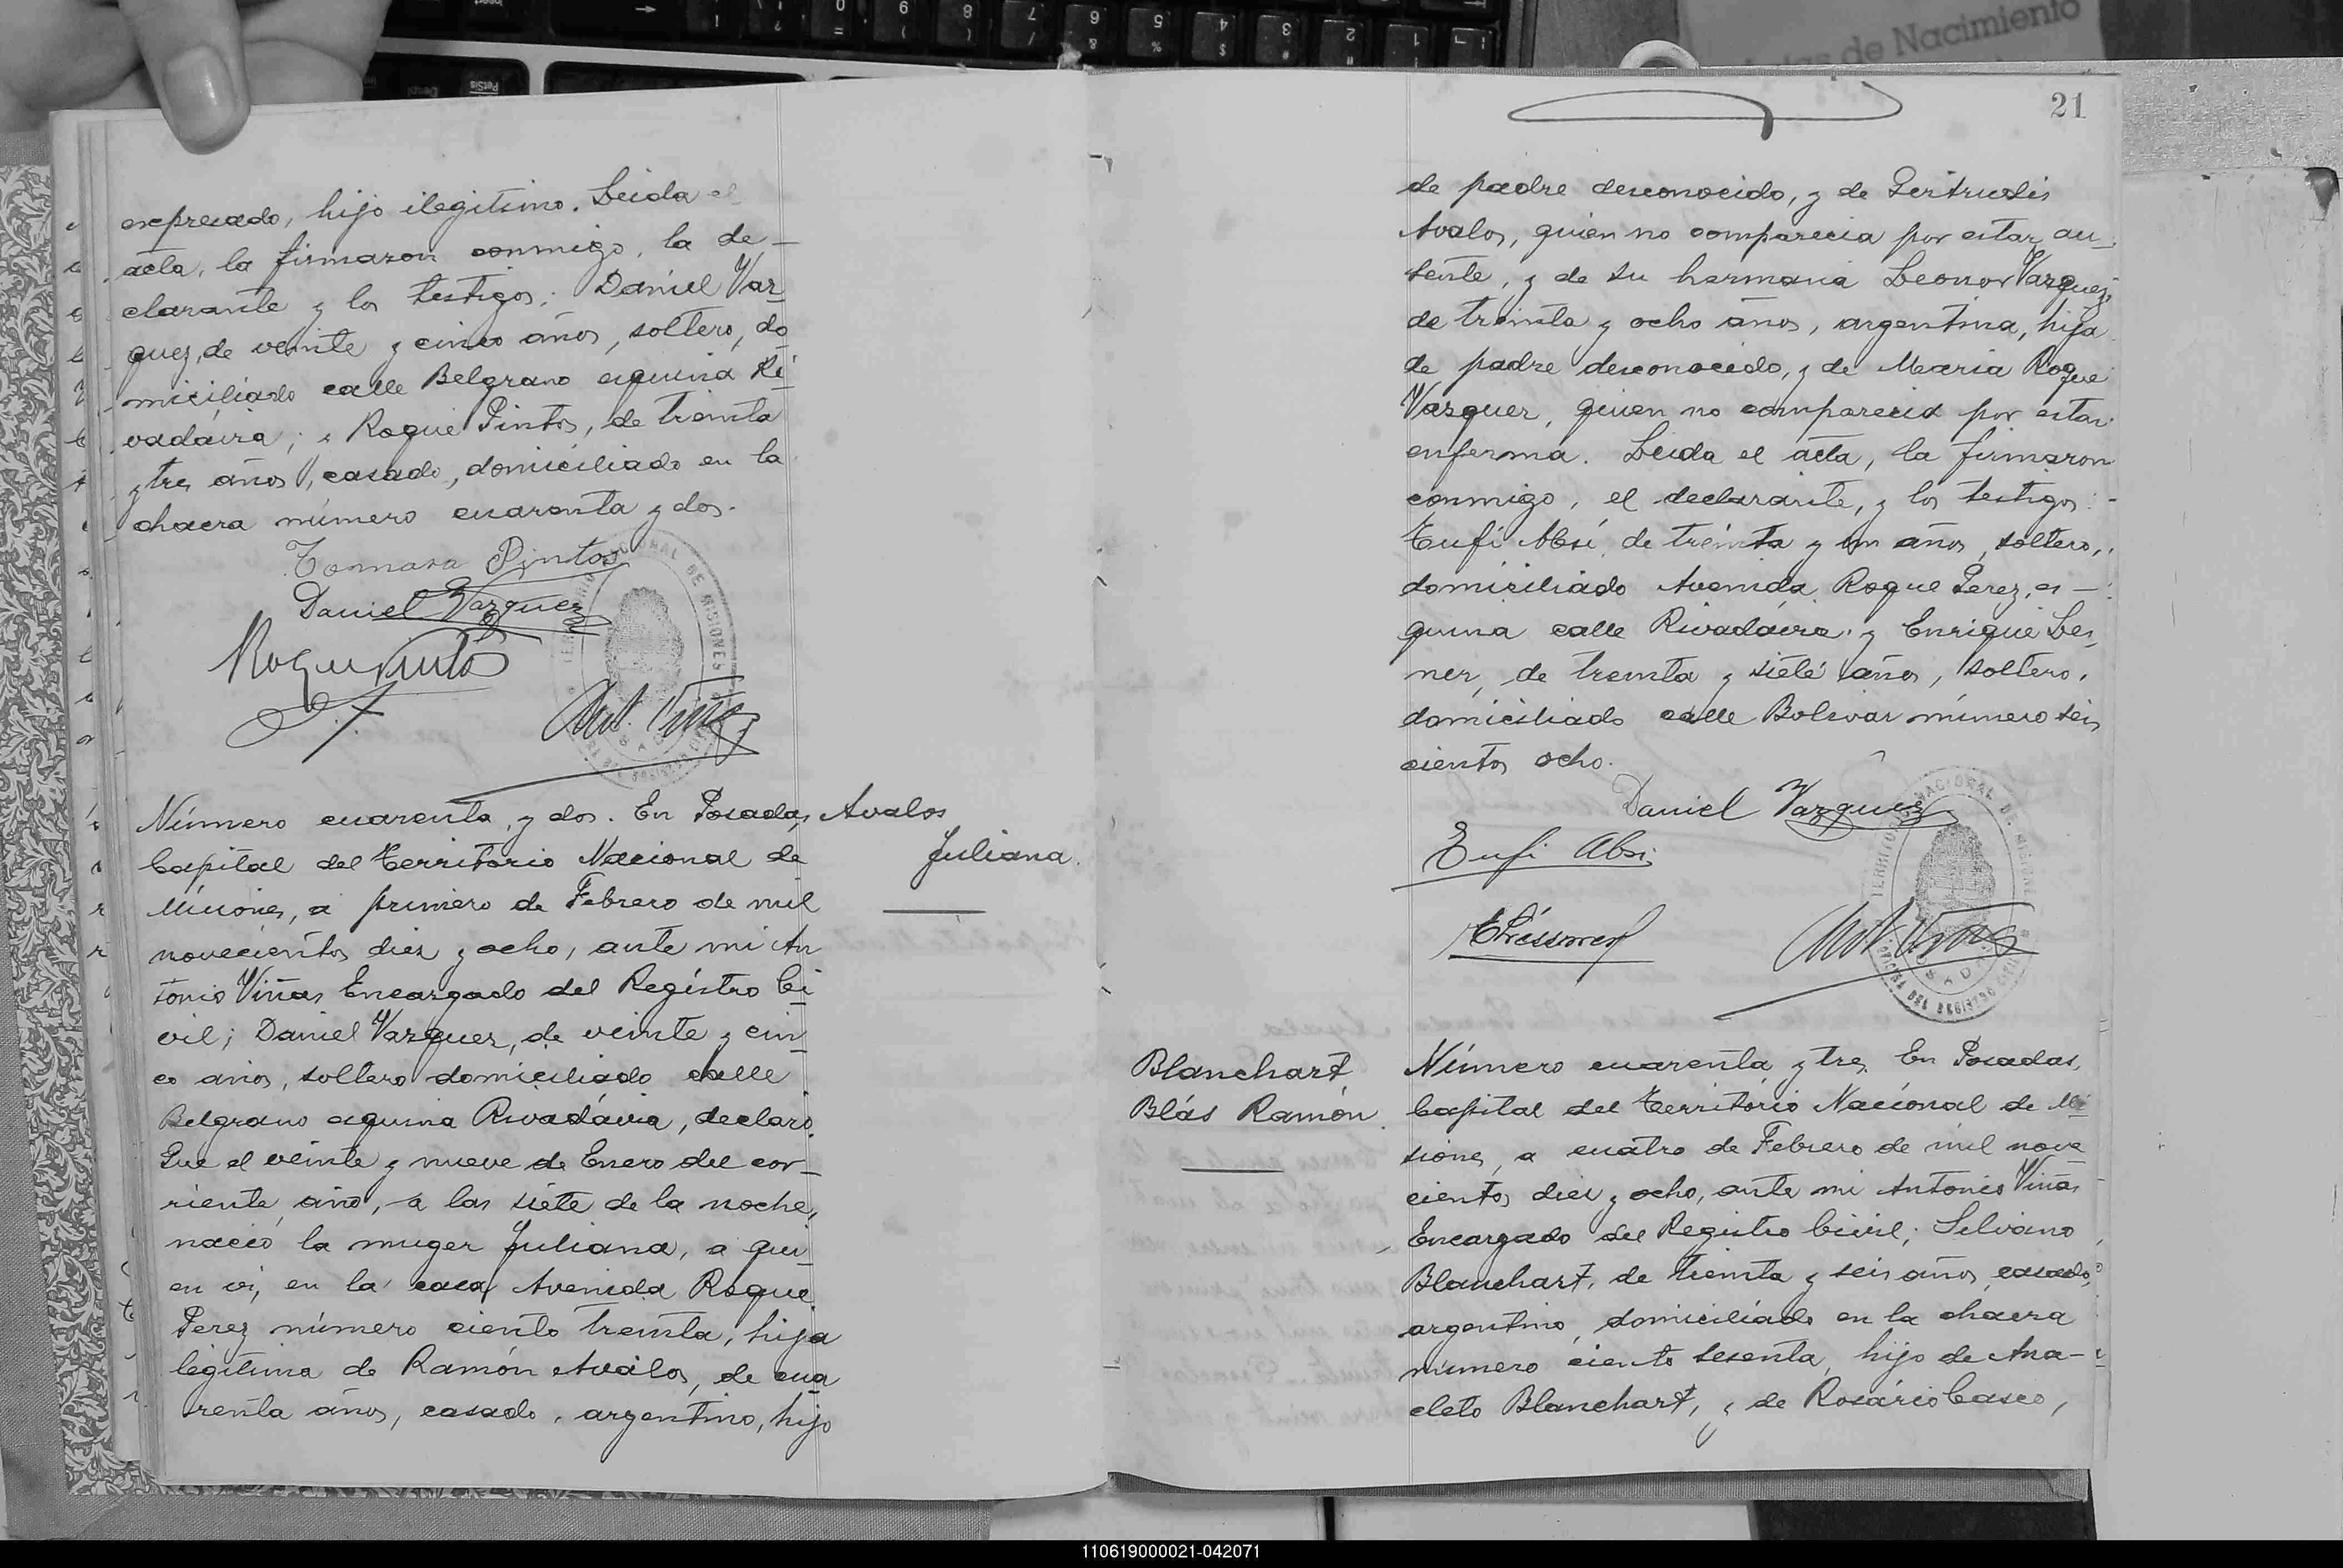 de Nacimiento
expresado, hijo ilegitimo. Leida el
acta, la firmaron conmigo, la de-
clarante y los testigos; Daniel Vaz
quez, de veinte y cinco años, soltero, do
miciliado calle Belgrano esquina Ri
vadávia; y Roque Pintos, de treinta
y tres años, casado, domiciliado en la
chacra número cuarenta y dos.
Tomasa Pintos
Daniel Vazquez
Roque Pintos
Ant. Viñas
Número cuarenta y dos. En Posadas,
Avalos
Juliana.
Capital del Territorio Nacional de
Misiones, a primero de Febrero de mil
novecientos diez y ocho, ante mi An
tonio Viñas Encargado del Registro Ci
vil; Daniel Vazquez, de veinte y cin-
co años, soltero domiciliado calle
Belgrano esquina Rivadávia, declaró.
Que el veinte y nueve de Enero del cor-
riente año, a las siete de la noche,
nació la muger Juliana, a qui-
en vi, en la casa Avenida Roque
Perez número ciento treinta, hija
legitima de Ramón Aválos, de cua
renta años, casado, argentino, hijo
21
de padre desconocido, y de Gertrudis
Avalos, quien no comparecia por estar au-
sente, y de su hermana Leonor Vazquez,
de treinta y ocho años, argentina, hija
de padre desconocido, y de Maria Roque
Vazquez, quien no comparecia por estar
enferma. Leida el acta, la firmaron
conmigo, el declarante, y los testigos:-
Tufi Absi, de treinta y un años, soltero,
domiciliado Avenida Roque Perez, es-
quina calle Rivadávia; y Enrique
de treinta y siete años, soltero,
domiciliado calle Bolivar número seis
cientos ocho.
Daniel Vazquez
Tufi Absi
Ant. Viñas
Blanchart
Blás Ramón.
Número cuarenta y tres. En Posadas,
Capital del Territorio Nacional de Mi
siones, a cuatro de Febrero de mil nove
cientos diez y ocho, ante mi Antonio Viñas
Encargado del Registro Civil; Silvano
Blanchart, de treinta y seis años, casado,
argentino, domiciliado en la chacra
número ciento sesenta, hijo de Ana-
cleto Blanchart, y de Rosário Casco,
110619000021-042071